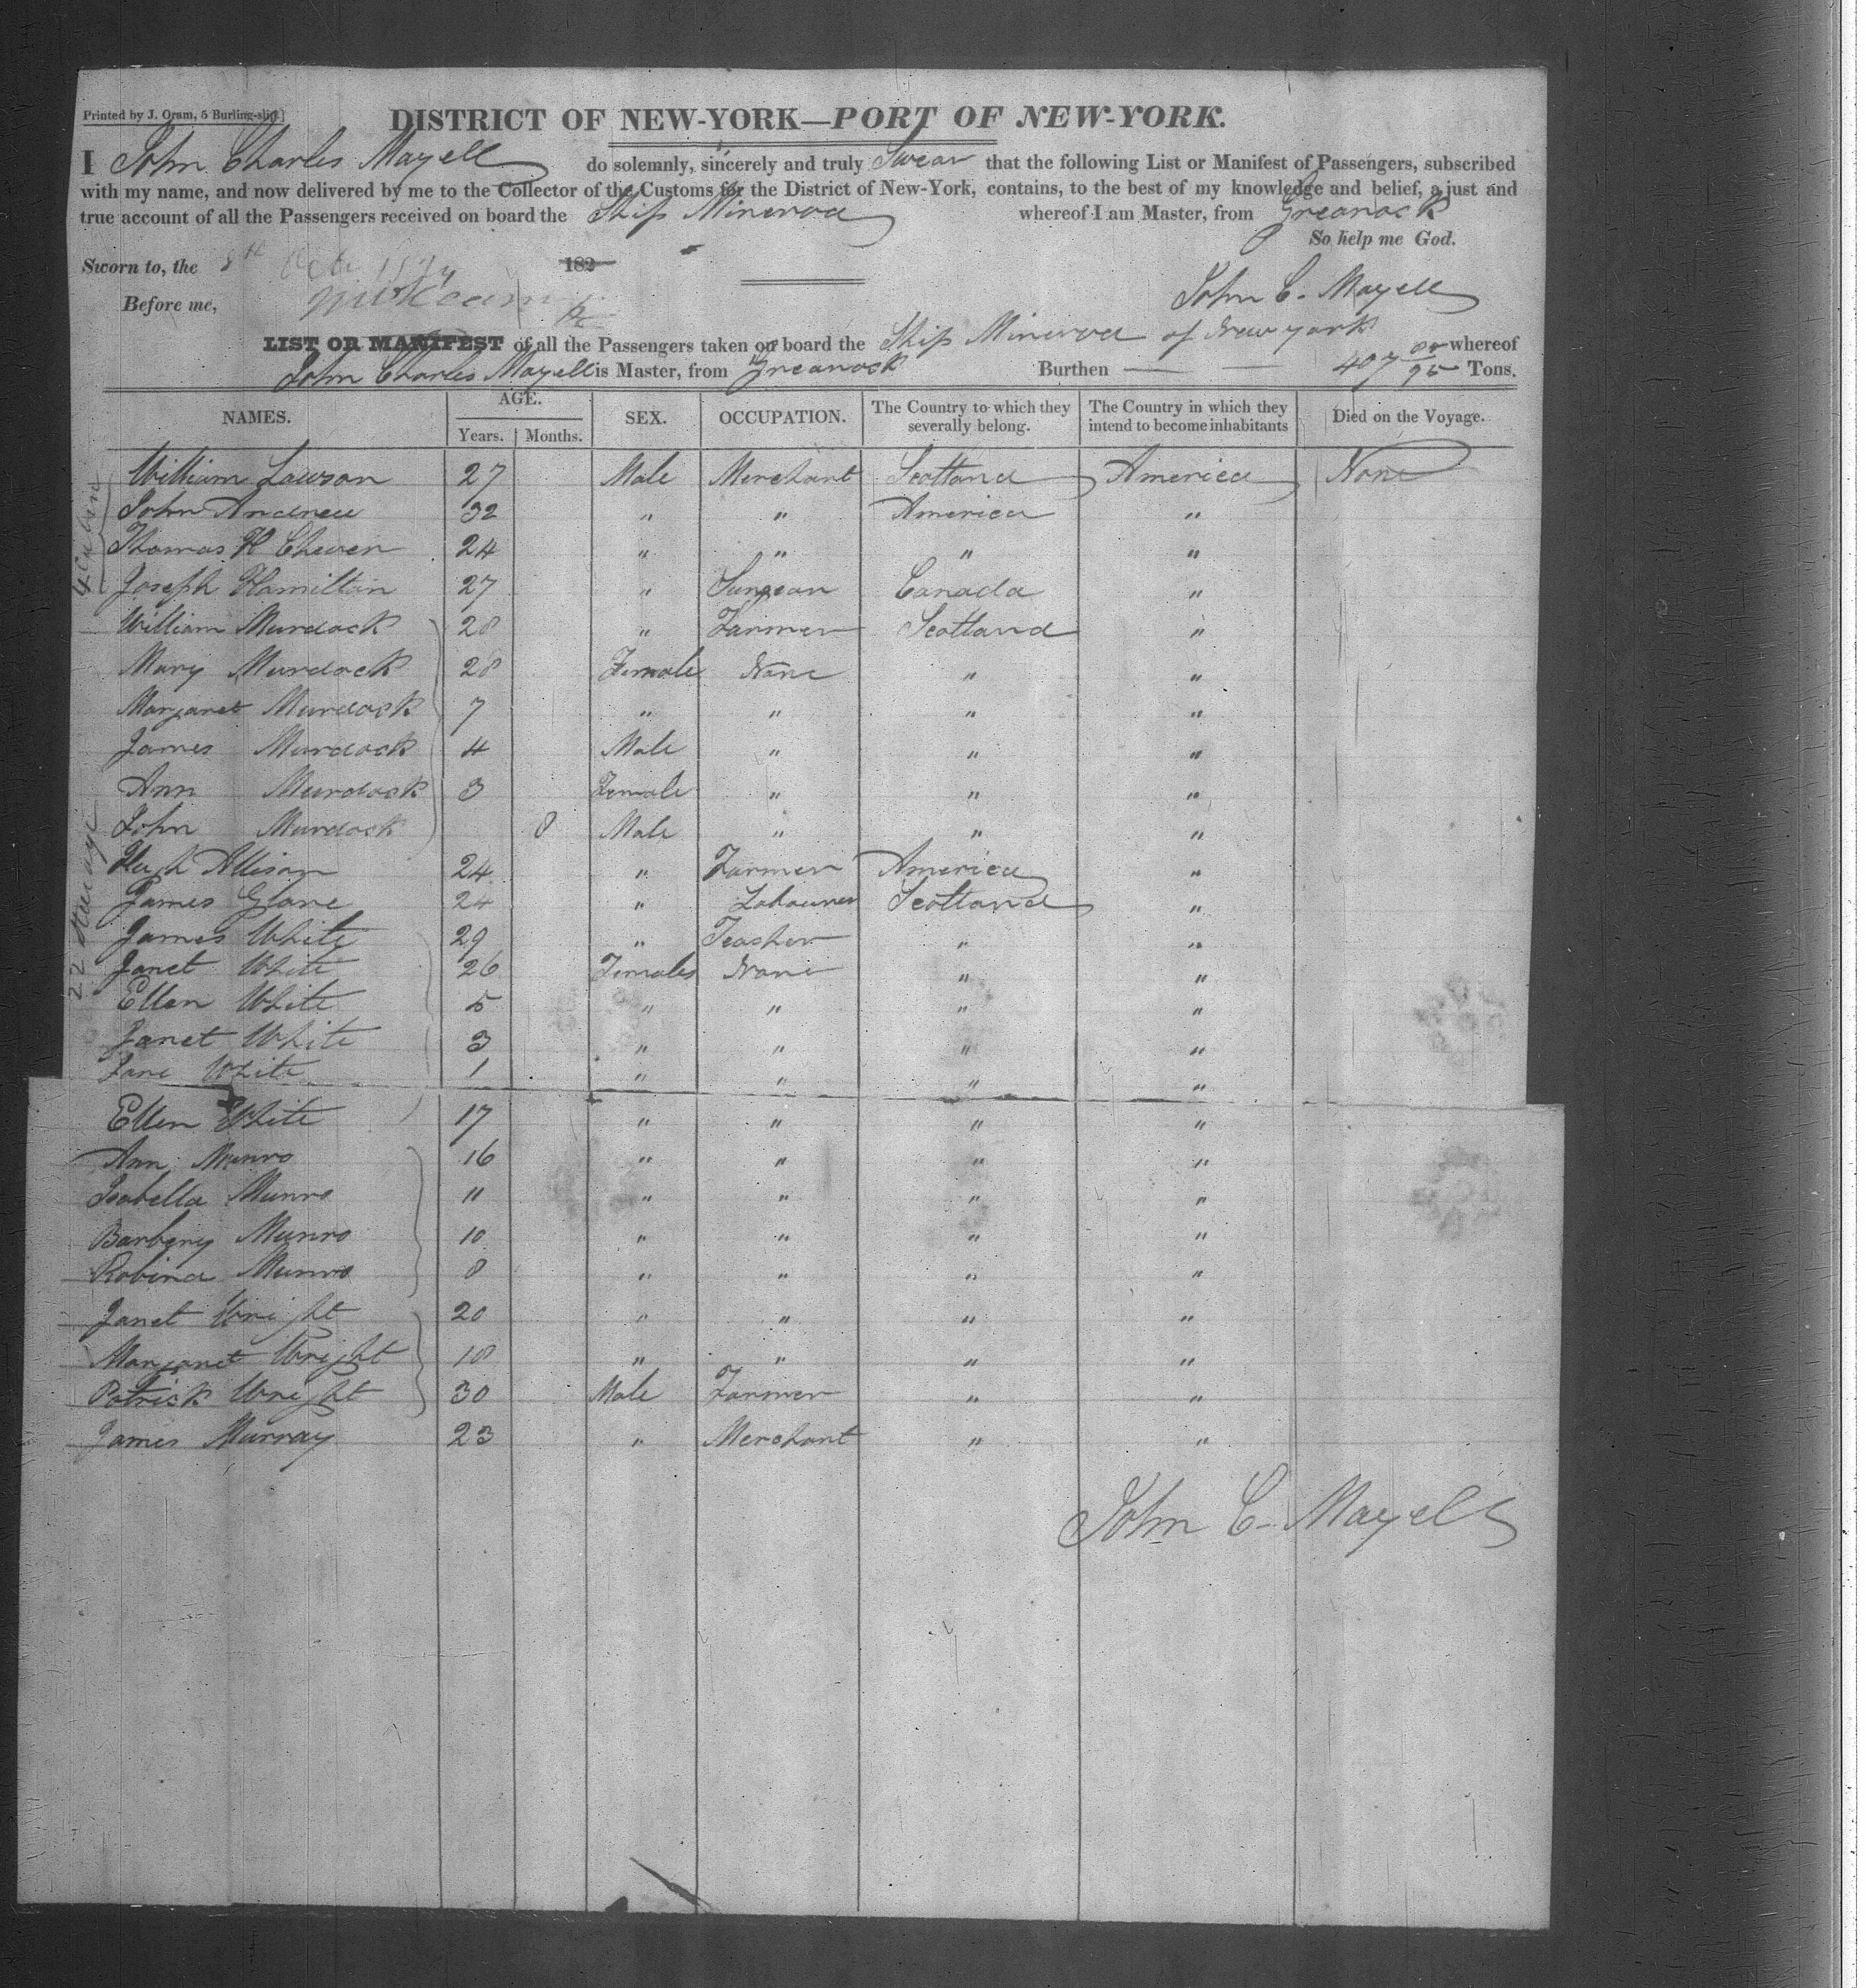 Printed by J. Oram, 5 Burling-slip.]
DISTRICT OF NEW-YORK—PORT OF NEW-YORK.
I John Charles Mayell do solemnly, sincerely and truly Swear that the following List or Manifest of Passengers, subscribed
with my name, and now delivered by me to the Collector of the Customs for the District of New-York, contains, to the best of my knowledge and belief, a just and
true account of all the Passengers received on board the Ship Minerva whereof I am Master, from Greanock
So help me God.
Sworn to, the 8th Octr 182
John C. Mayell
Before me,
LIST OR MANIFEST of all the Passengers taken on board the Ship Minerva of New york whereof
John Charles Mayell is Master, from Greanock Burthen 407 /95 Tons.
NAMES. AGE. Years. Months. SEX. OCCUPATION. The Country to which they severally belong. The Country in which they intend to become inhabitants Died on the Voyage.
4 Cabin
William Lawson 27 Male Merchant Scotland America None
John Andrew 32 " " America "
Thomas H Cheven 24 " " " "
Joseph Hamilton 27 " Surgeon Canada "
22 Stearage
William Murdock 28 " Farmer Scotland "
Mary Murdock 28 Female None " "
Margaret Murdock 7 " " " "
James Murdock 4 Male " " "
Ann Murdock 3 Female " " "
John Murdock 8 Male " " "
Hugh Allison 24 " Farmer America "
James Glave 24 " Labourer Scotland "
James White 29 " Teacher " "
Janet White 26 Females None " "
Ellen White 5 " " " "
Janet White 3 " " " "
Jane White 1 " " " "
Ellen White 17 " " " "
Ann Munro 16 " " " "
Isabella Munro 11 " " " "
Barbery Munro 10 " " " "
Robina Munro 8 " " " "
Janet Wright 20 " " " "
Margaret Wright 18 " " " "
Patrick Wright 30 Male Farmer " "
James Murray 23 " Merchant " "
John C. Mayell